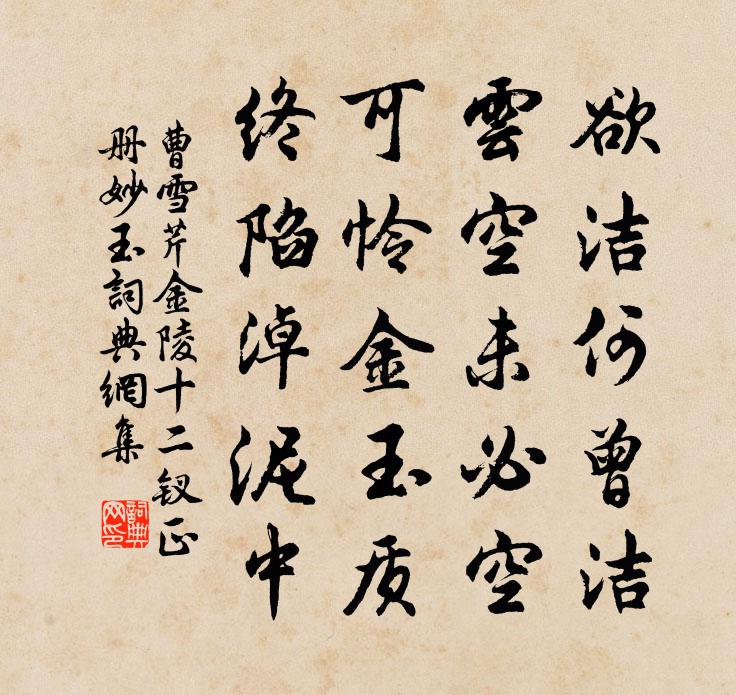 欲洁何曾洁
雲空未必空
可怜金玉质
终陷淖泥中
曹雪芹金陵十二钗正
册妙玉詞典網集
詞典
网印